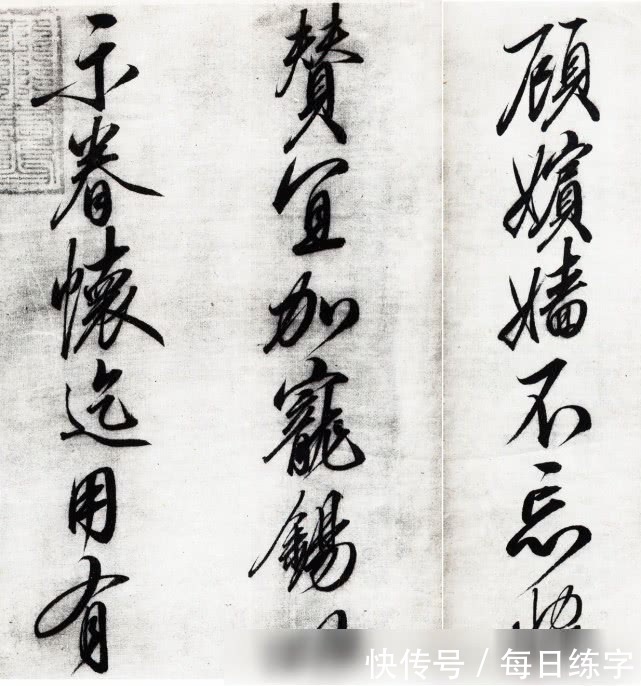 顧嬪嬙不忘
賛宜加寵錫
示眷懷迄用有
快传号 / 每日练字